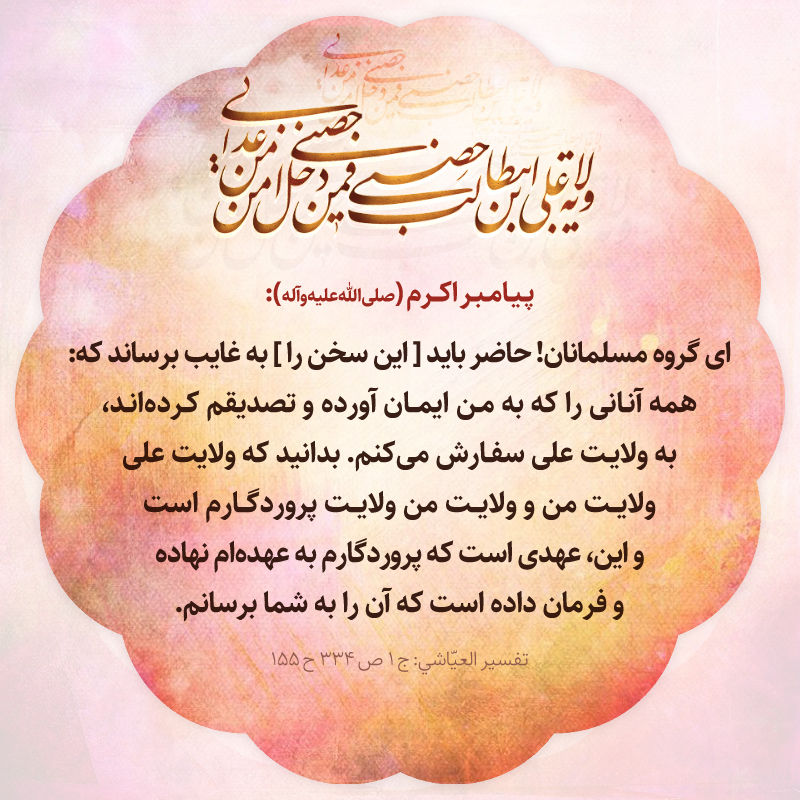 ولایة علی بن ابیطالب حصنی فمن دخل حصنی امن من عذابی
پیامبر اکرم (صلی‌الله‌علیه‌وآله):
ای گروه مسلمانان! حاضر باید [ این سخن را ] به غایب برساند که:
همه آنانی را که به من ایمـان آورده و تصدیقم کـرده‌انـد،
به ولایـت علی سفـارش می‌کنم. بدانید که ولایت علی
ولایـت من و ولایـت من ولایـت پروردگـارم است
و این، عهدی است که پروردگارم به عهده‌ام نهاده
و فرمان داده است که آن را به شما برسانم.
تفسیر العیّاشي: ج ۱ ص ۳۳۴ ح ۱۵۵